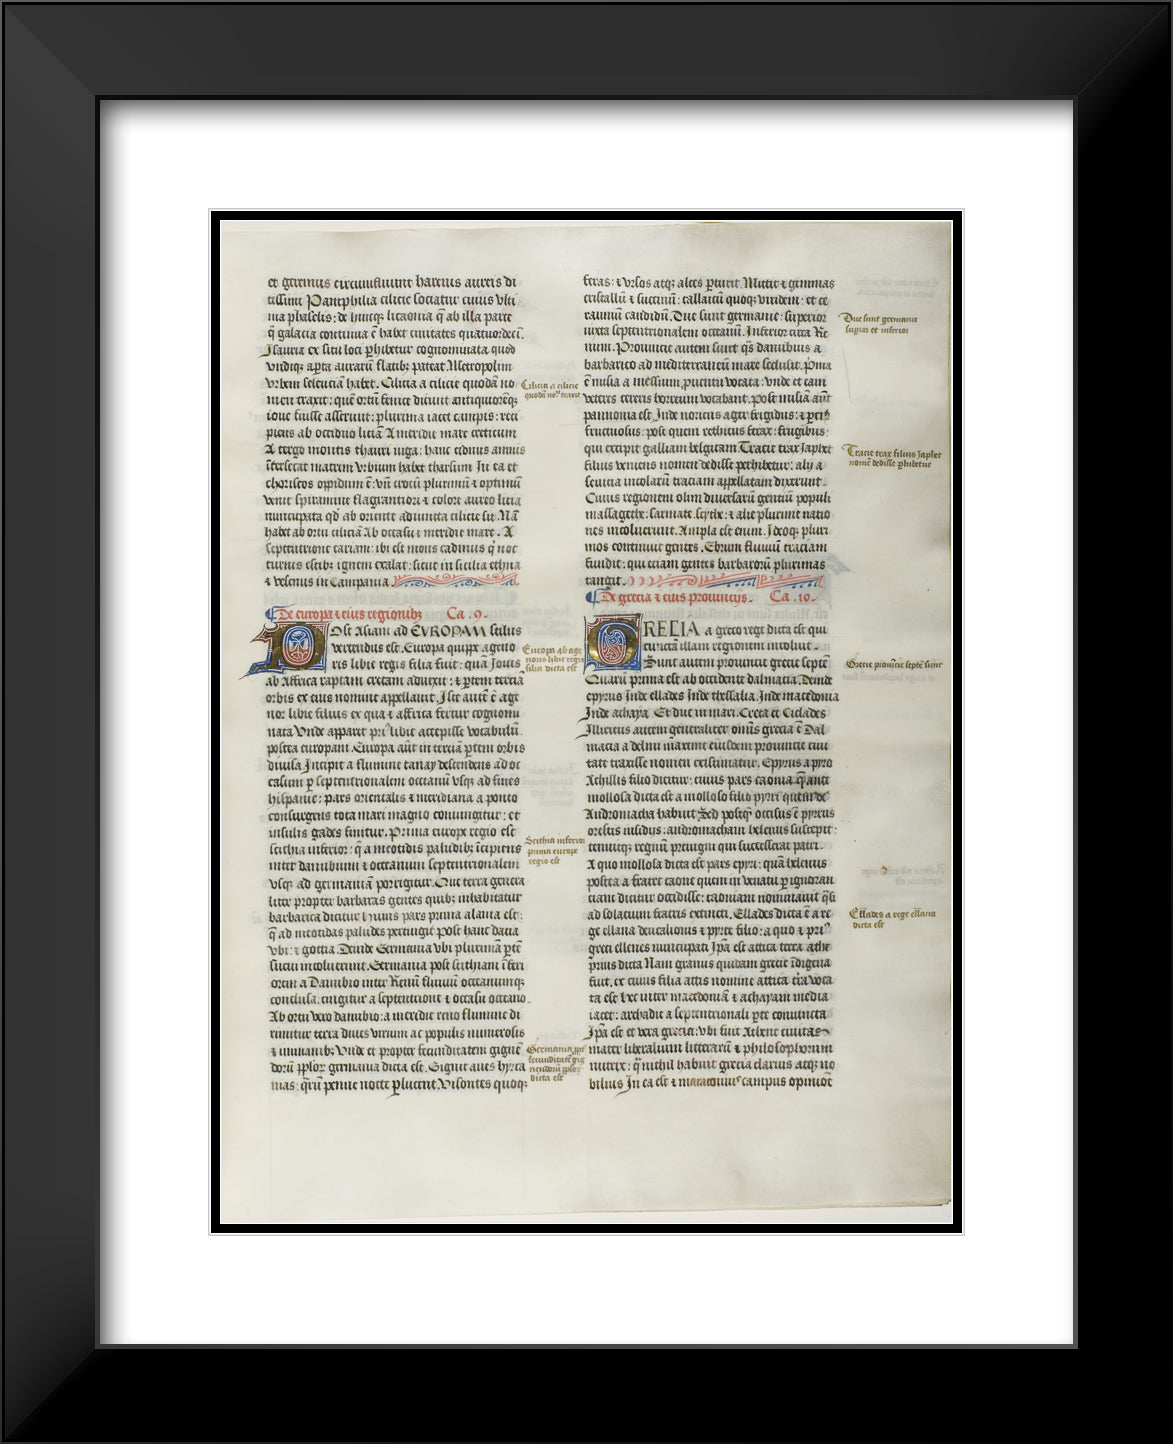 et geminus circumfluunt harenis aureis di
tissimi Pamphilia cilicie sociatur cuius vlti
ma phaselis: de hincq̨ licaonia q̄ ab illa parte
q̄ galacia continua ē habet ciuitates quatuordecī.
Isauria ex situ loci ꝑhibetur cognominata quod
vndiq̨ aꝑta aurarū flatibꝫ pateat. Metropolim
vrbem seleuciā habet. Cilicia a cilicie quodā no
men traxit: quē ortū fenice dicunt antiquiorēq̨
ioue fuisse asserunt: plurima iacet campis: reci
piens ab occiduo liciā A meridie mare creticum
A tergo montis thauri iuga: hanc cidnus amnis
īterfecat matrem vrbium habet tharsum In ea et
opidum ē: vn̄ crocū plurimū ⁊ optimū
venit spiramine flagrantiori ⁊ colore aureo licia
nuncupata qđ ab oriente adiuncta cilicie sit. Nā
habet ab ortu ciliciā Ab occasu ⁊ meridie mare. A
septentrione cariam: ibi est mons q̄ noc
turnis estibꝫ ignem exalat: sicut in sicilia ethna
⁊ vesenus in Campania
De europa ⁊ eius regionibꝫ Ca .9.
Post Asiam ad EVROPAM stilus
vertendus est. Europa quippe ageno
ris libie regis filia fuit: quā Jouis
ab Affrica raptam cretam aduexit: ⁊ ꝑtem tercia
orbis ex eius nomine appellauit. Iste autē ē age
nor libie filius ex qua ⁊ affrica fertur cognomi
nata Vnde apparet pri libie accepisse vocabulū.
postea europam. Europa aūt in terciā ꝑtem orbis
diuisa Incipit a flumine tanay descendens ad oc
casum ꝑ septentrionalem occeanū vsq̨ ad fines
hispanie: pars orientalis ⁊ meridiana a ponto
consurgens tota mari magno coniungitur: et
insulis gades finitur. Prima europe regio est
scithia inferior: q̄ a meotidis paludibꝫ īcipiens
inter danubium ⁊ occeanum septentrionalem
vsq̨ ad germaniā porrigitur. Que terra genera
liter propter barbaras gentes quibꝫ inhabitatur
barbarica dicitur huius pars prima alania est:
q̄ ad meotidas paludes pertingit Post hanc dacia
vbi: ⁊ gothia. Deinde Germania vbi plurimā ꝑtē
sueui incoluerunt. Germania post scithiam īferi
orem a Danubio inter Renū fluuiū occeanumq̨
conclusa. cingitur a septentrione ⁊ occasu occeano.
Ab ortu vero danubio: a meridie reno flumine di
rimitur terra diues virum ac populis numerosis
⁊ immanibꝫ Vnde et propter fecunditatem gignē
dorū ꝓplor germania dicta est. Gignit aues hyrca
nias: q̄rū penne nocte ꝑlucent. Visontes quoq̨
Cilicia a cilicie
quodā noē traxit
Europa ab age
noris libie regis
filia dicta est
Scithia inferior
prima europe
regio est
Germania ꝓpt
fecunditatē gig
nendorū ꝓplor
dicta est
feras: ⁊ vrsos atq̨ alces ꝑturit. Mittit ⁊ gemmas
cristallū ⁊ succinū: callaicū quoq̨ viridem: et ce
raunium candidū. Due sunt germanie: superior
iuxta septentrionalem occeanū. Inferior circa Re
num. Prouincie autem sunt q̄s danubius a
barbarico ad mediterraneū mare seclusit. Pma
ē misia a messium ꝓuentu vocata: vnde et eam
veteres cereris horreum vocabant. Post misiā aūt
pannonia est Inde noricus ager frigidus: ⁊ ꝑcius
fructuosus: post quem rethicus ferax: frugibus:
qui excipit galliam belgicam Tracie tirax Japhet
filius veniens nomen dedisse perhibetur: alij a
seuicia incolarū traciam appellatam dixerunt.
Cuius regionem olim diuersarū gentiū populi
massagethe: sarmate. scythe: ⁊ alie plurime natio
nes incoluerunt. Ampla est enim. Ideoq̨ pluri
mos continuit gentes. Ebrum fluuiū traciam
fundit: qui etiam gentes barbarorū plurimas
tangit.
De grecia ⁊ eius prouincijs. Ca .10.
GRECIA a greco rege dicta est qui
cunctā illam regionem incoluit.
Sunt autem prouincie grecie septē
Quarū prima est ab occidente dalmacia. Deinde
epyrus Inde ellades Inde thessalia. Inde macedonia
Inde achaya. Et due in mari. Creta et Ciclades
Illiricus autem generaliter omīs grecia ē Dal
macia a delmi maxime eiusdem prouincie ciui
tate traxisse nomen existimatur. Epyrus a pyro
Achillis filio dicitur: cuius pars caonia q̄ ante
molosia dicta est a molosso filio pyrri quem de
Andromacha habuit: Sed postq̄ occisus ē pyrrus
orestis insidijs: andromacham helenus suscepit:
tenuitq̨ regnū preuigni qui successerat patri.
A quo molossa dicta est pars epyri: quā helenus
postea a fratre caone quem in venatu ꝑ ignoran
ciam dicitur occidisse: caoniam nominauit q̄si
ad solacium fratris extincti. Ellades dicta ē a re
ge ellana deucalionis ⁊ pyrre filio: a quo ⁊ pri
greci ellenes nuncupati Ipā est attica terra athe
prius dicta Nam granus quidam grecie īdigena
fuit. ex cuius filia attis nomine attica terra voca
ta est hec inter macedoniā ⁊ achayam media
iacet: archadie a septentrionali ꝑte coniuncta
Ipā est et vera grecia: vbi fuit Athene ciuitas
mater liberalium litterarū ⁊ philosophorum
nutrix: q̄ nichil habuit grecia clarius atq̨ no
bilius In ea est ⁊ campus opinione
Due sunt germanie
supior et inferior
Tracie tirax filius Japhet
nomē dedisse ꝑhibetur
Grecie prouīcie septē sunt
Ellades a rege ellana
dicta est